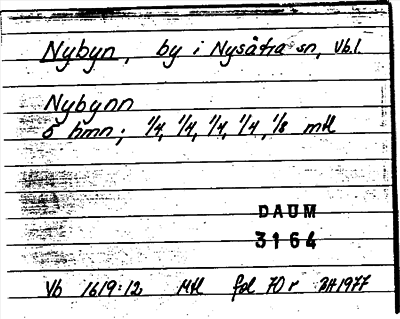 Nybyn, by i Nysätra sn, Vb.l.
Nybynn
5 hmn; 1/4, 1/4, 1/4, 1/4, 1/8 mtl
DAUM
3164
Vb 1619:12 Mtl fol 70 r BH 1977